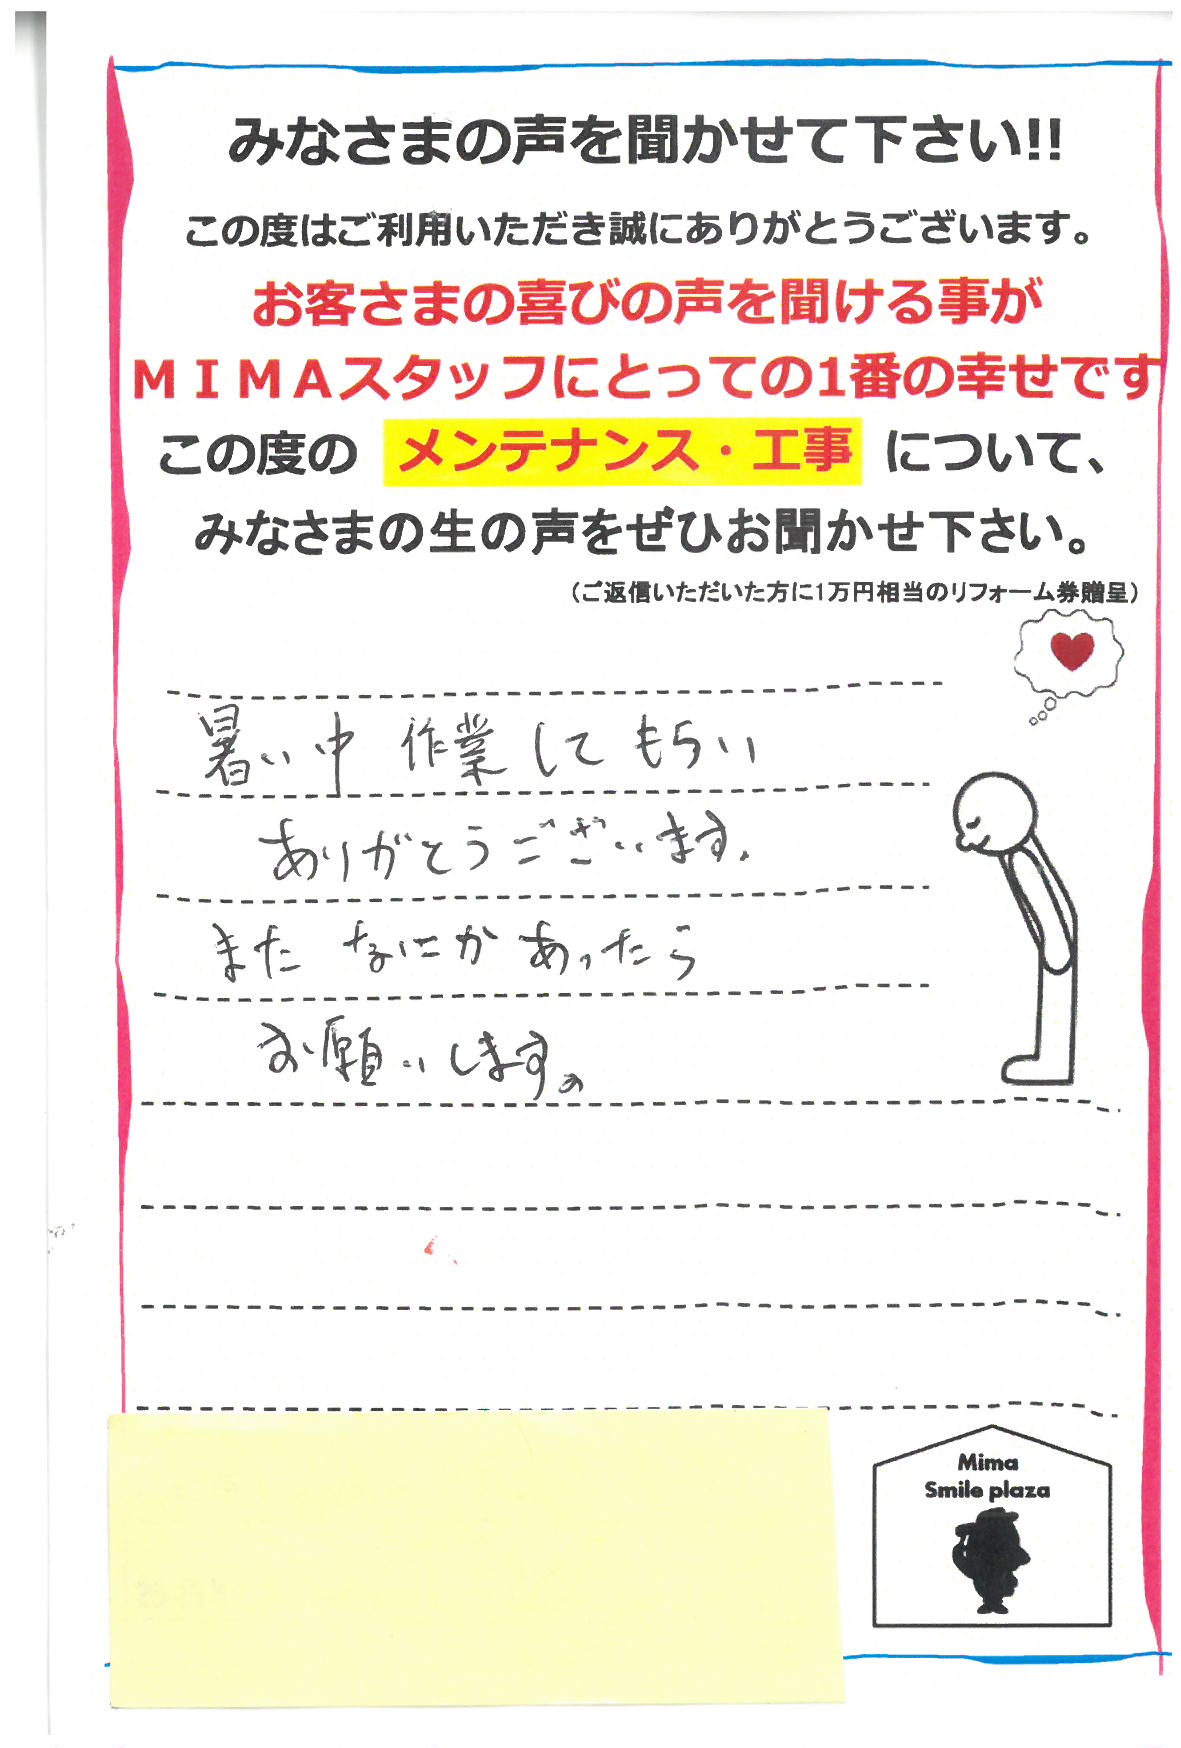 みなさまの声を聞かせて下さい!!
この度はご利用いただき誠にありがとうございます。
お客さまの喜びの声を聞ける事が
ＭＩＭＡスタッフにとっての1番の幸せです
この度の メンテナンス・工事 について、
みなさまの生の声をぜひお聞かせ下さい。
（ご返信いただいた方に1万円相当のリフォーム券贈呈）
暑い中 作業してもらい
ありがとうございます.
また なにかあったら
お願いします。
Mima
Smile plaza